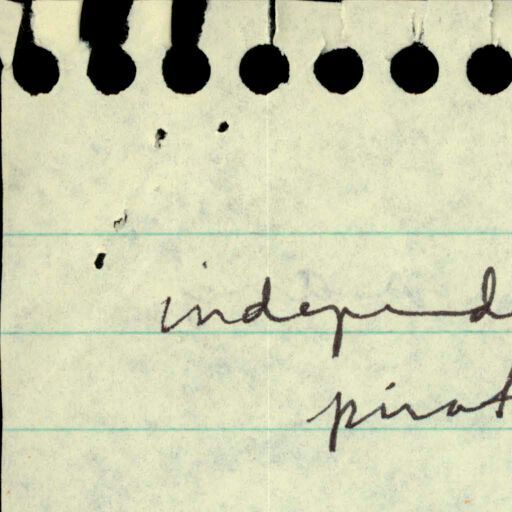 independ
pirat